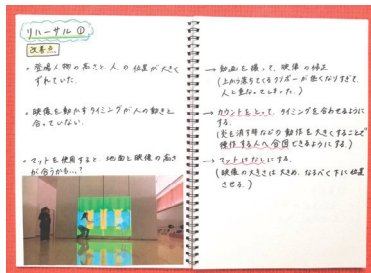 リハーサル①
改善点
・登場人物の高さと人の位置が大きく
ずれていた.
・映像を動かすタイミングが人の動きと
合っていない.
・マットを使用すると、地面と映像の高さ
が合うかも…?
→動画を撮って、映像の修正
(上から落ちてくるクリボーが低くなりすぎて、
人と重なってしまった.)
→カウントをとって、タイミングを合わせるように
する.
(炎を消す時などの動作を大きくすることで
操作する人へ合図できるようにする.)
→マットはなしにする.
(映像の大きさは大きめ、なるべく下に位置
させる.)